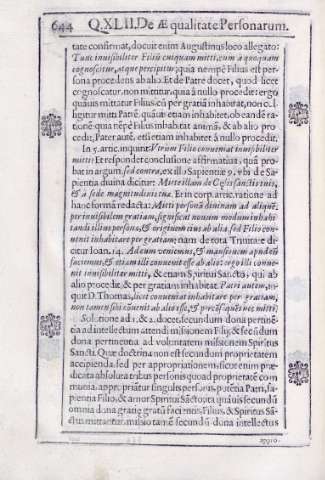 644 Q.XLIII. De Æqualitate Personarum.
tate confirmat, docuit enim Augustinus loco allegato:
Tunc invisibiliter Filiũ cuiquam mitti, cum à quoquam
cognoscitur, atque percipitur; quia nempè Filius est per-
sona procedens ab alio. Et de Patre docet, quod licet
cognoscatur, non mittitur, quia à nullo procedit: ergo
quãuis mittatur Filius, cũ per gratiã inhabitat, non col-
ligitur mitti Patrẽ, quãuis etiam inhabitet, ob eandẽ ra-
tionẽ quia nẽpè Filius inhabitat animã, & ab alio pro-
cedit, Pater autẽ, etsi etiam inhabitet à nullo procedit.
In 5. artic. inquirit Vtrùm Filio conueniat inuisibiliter
mitti? Et respondet conclusione affirmatiua, quã pro-
bat in argum. sed contra, ex illo Sapientiæ 9. vbi de Sa-
pientia diuina dicitur: Mitte illam de Cœlis sanctis tuis,
& à sede magnitudinis tuæ. Et in corp. artic. ratione ad
hanc formã redacta: Mitti personã diuinam ad aliquẽ,
per inuisibilem gratiam, significat nouum modum inhabi-
tandi illius personæ, & originem eius ab alia, sed Filio con-
uenit inhabitare per gratiam; nam de tota Trinitate di-
citur Ioan. 14. Ad eum veniemus, & mansionem apud eũ
faciemus, & etiam illi conuenit esse ab alio: ergo illi conue-
nit inuisibiliter mitti, & etiam Spiritui Sancto, qui ab
alio procedit, & per gratiam inhabitat. Patri autem, in-
quit D. Thomas, licet conueniat inhabitare per gratiam,
non tamen sibi cõuenit ab alio esse, & per cõsequẽs nec mitti.
Solutione ad 1. & 2. docet, secundum dona pertinẽ-
tia ad intellectum attendi missionem Filij, & secũdum
dona pertinentia ad voluntatem missionem Spiritus
Sancti. Quæ doctrina non est secundùm proprietatem
accipienda, sed per appropriationem, sicut enim præ-
dicata absoluta tribus personis quoad proprietatẽ com-
munia, appropriãtur singulis personis, potẽtia Patri, sa-
pientia Filio, & amor Spiritui Sãcto, ita quãuis secundũ
omnia dona gratiæ gratũ faciẽntis, Filius, & Spiritus Sã-
ctus mittantur, missio tamẽ secundũ dona intellectus